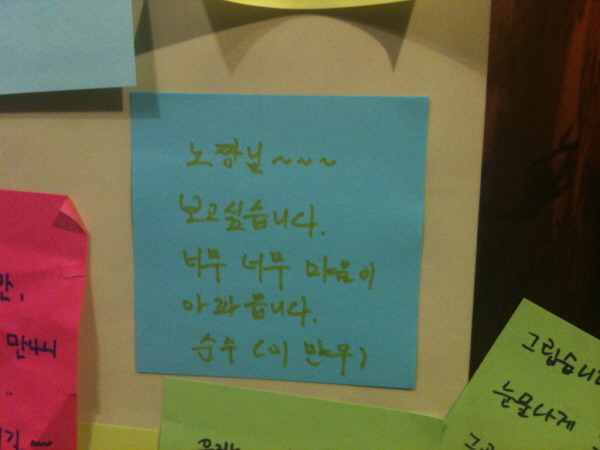 노짱님~~~
보고싶습니다.
너무 너무 마음이
아파옵니다.
순수(이만무)
만나서
그립습니다
눈물나게